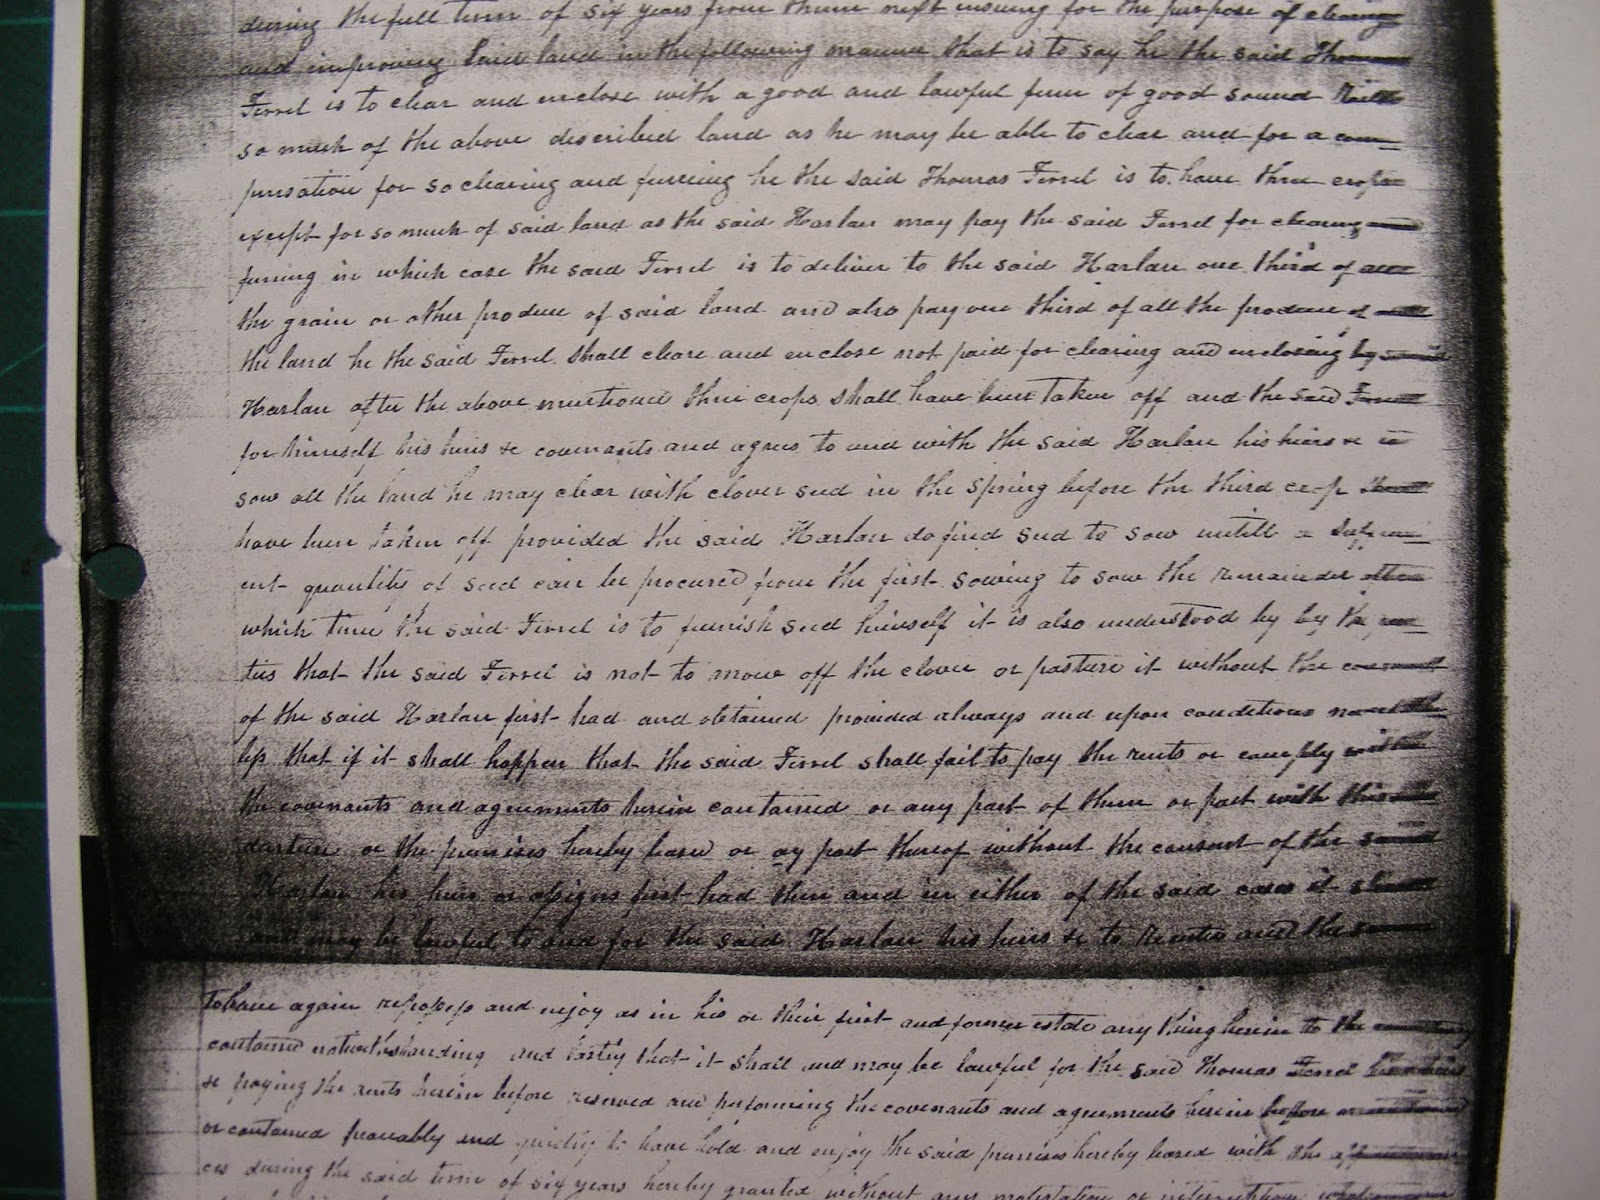 during the full term of six years from thence next insuing for the purpose of clearing
and improving said land in the following manner that is to say he the said Thomas
Ferrel is to clear and enclose with a good and lawful fence of good sound Rails
so much of the above described land as he may be able to clear and for a com
pensation for so clearing and fencing he the said Thomas Ferrel is to have three crops
except for so much of said land as the said Harlan may pay the said Ferrel for clearing
fencing in which case the said Ferrel is to deliver to the said Harlan one third of all
the grain or other produce of said land and also pay one third of all the produce of
the land he the said Ferrel shall clear and enclose not paid for clearing and enclosing by
Harlan after the above mentioned three crops shall have been taken off and the said Ferrel
for himself his heirs &c covenants and agrees to and with the said Harlan his heirs &c
sow all the land he may clear with clover seed in the spring before the third crop shall
have been taken off provided the said Harlan do find seed to sow untill a suffici
ent quantity of seed can be procured from the first sowing to sow the remainder after
which time the said Ferrel is to furnish seed himself it is also understood by by the par
ties that the said Ferrel is not to mow off the clover or pasture it without the consent
of the said Harlan first had and obtained provided always and upon condition
less that if it shall happen that the said Ferrel shall fail to pay the rents or comply with
the covenants and agreements herein contained or any part of them or part with this
denture or the premises hereby leased or ay part thereof without the consent of the said
Harlan his heirs or assigns first had then and in either of the said cases it shall
and may be lawful to and for the said Harlan his heirs &c to Reenter and the
To have again repossess and enjoy as in his or their first and former estate any thing herein to the contrary
contained notwithstanding and lastly that it shall and may be lawful for the said Thomas Ferrel his heirs
&c paying the rents herein before reserved and performing the covenants and agreements herein before mentioned
or contained peaceably and quietly to have hold and enjoy the said premises hereby leased with the
ces during the said term of six years hereby granted without any molestation or interruption whatsoever